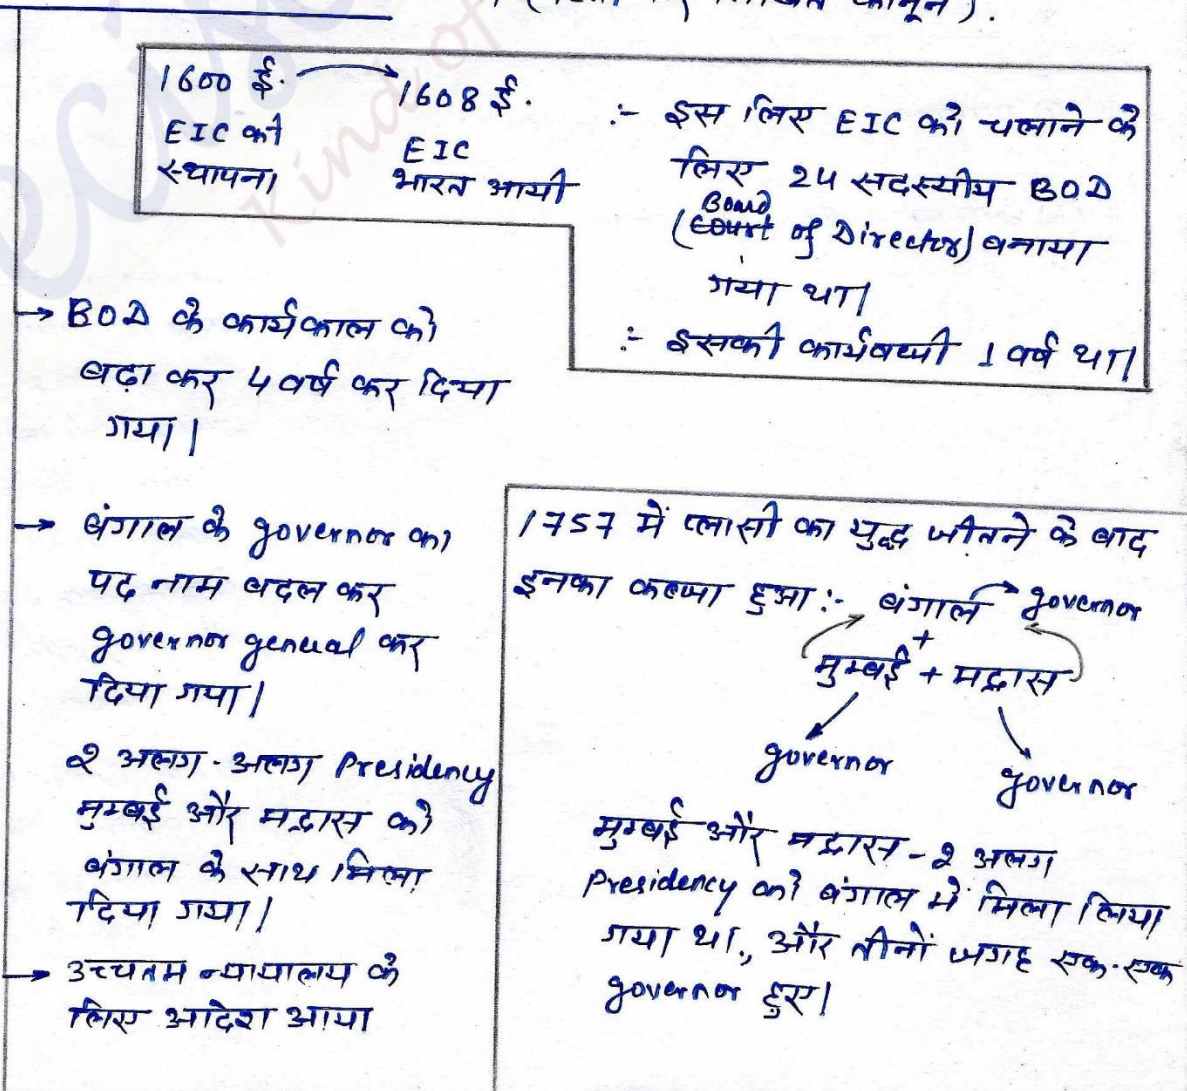 कानून).
1600 ई.
EIC की
स्थापना
1608 ई.
EIC
भारत आयी
:- इस लिए EIC को चलाने के
लिए 24 सदस्यीय BOD
Board
(Court of Director) बनाया
गया था।
:- इसकी कार्यवधी 1 वर्ष था।
→ BOD के कार्यकाल को
बढ़ा कर 4 वर्ष कर दिया
गया।
→ बंगाल के governor का
पद नाम बदल कर
governor general कर
दिया गया।
2 अलग-अलग Presidency
मुम्बई और मद्रास को
बंगाल के साथ मिला
दिया गया।
→ उच्चतम न्यायालय के
लिए आदेश आया
1757 में प्लासी का युद्ध जीतने के बाद
इनका कब्जा हुआ :- बंगाल → governor
+
मुम्बई + मद्रास
governor governor
मुम्बई और मद्रास - 2 अलग
Presidency को बंगाल में मिला लिया
गया था, और तीनों जगह एक-एक
governor हुए।